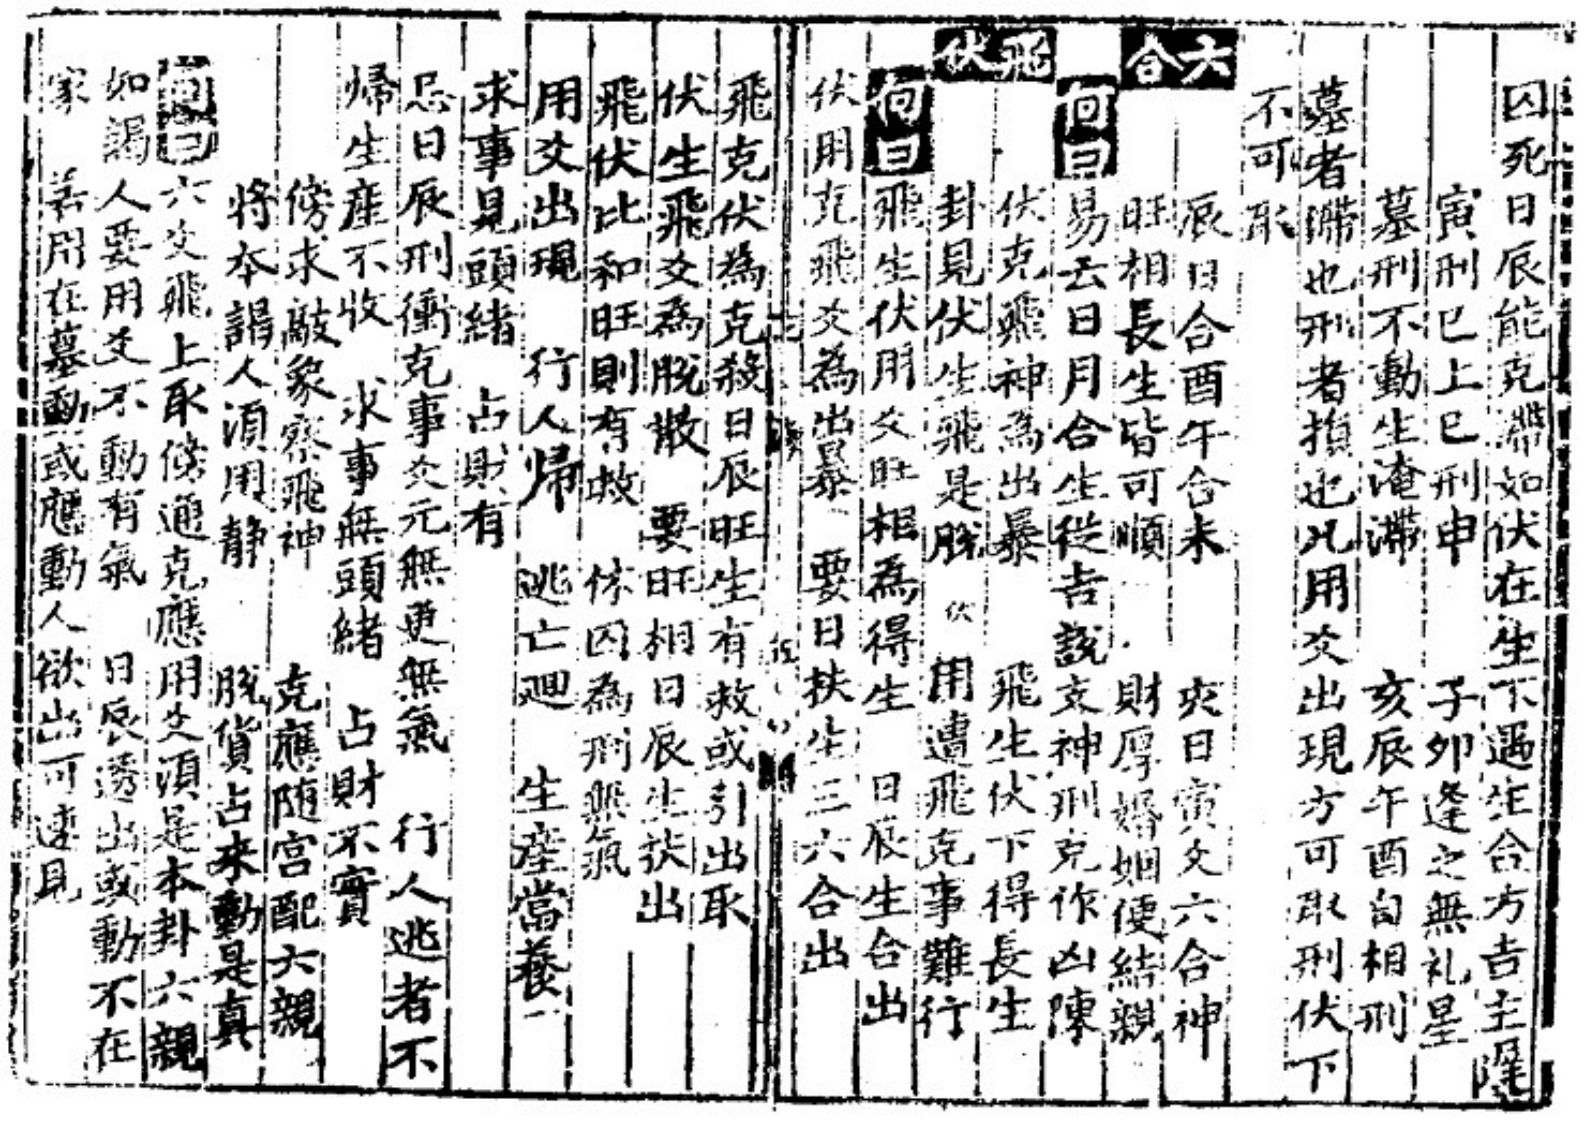 囚死日辰能克滯如伏在生下遇生合方吉主隆
寅刑巳上巳刑申　子卯逢之無礼星
墓刑不動生淹滯　亥辰午酉自相刑
墓者滯也刑者損也凡用爻出現方可取刑伏下
不可取
六合
辰日合酉午合未　爻日寅爻六合神
旺相長生皆可順　財厚婚姻便結親
何曰易云日月合生從吉說玄神刑克作凶陳
飛伏
伏克飛神為出暴　飛生伏下得長生
卦見伏生飛是脫　伏用遭飛克事難行
何曰飛生伏用爻旺相為得生　日辰生合出
伏用克飛爻為出暴　要日扶生三六合出
飛克伏為克殺日辰旺生有救或引出取
伏生飛爻為脫散　要旺相日辰生扶出
飛伏比和旺則有救　休囚為刑無氣
用爻出現　行人歸　逃亡廻　生產當養
求事見頭緒　占財有
忌日辰刑衝克事爻元無更無氣　行人逃者不
歸生產不收　求事無頭緒　占財不實
傍求敲象察飛神　克應随宮配六親
將本謁人須用靜　脫貨占來動是真
何曰六爻飛上取傍通克應用爻須是本卦六親
如謁人要用爻不動有氣　日辰透出或動不在
家　若用在墓動或應動人欲出可速見